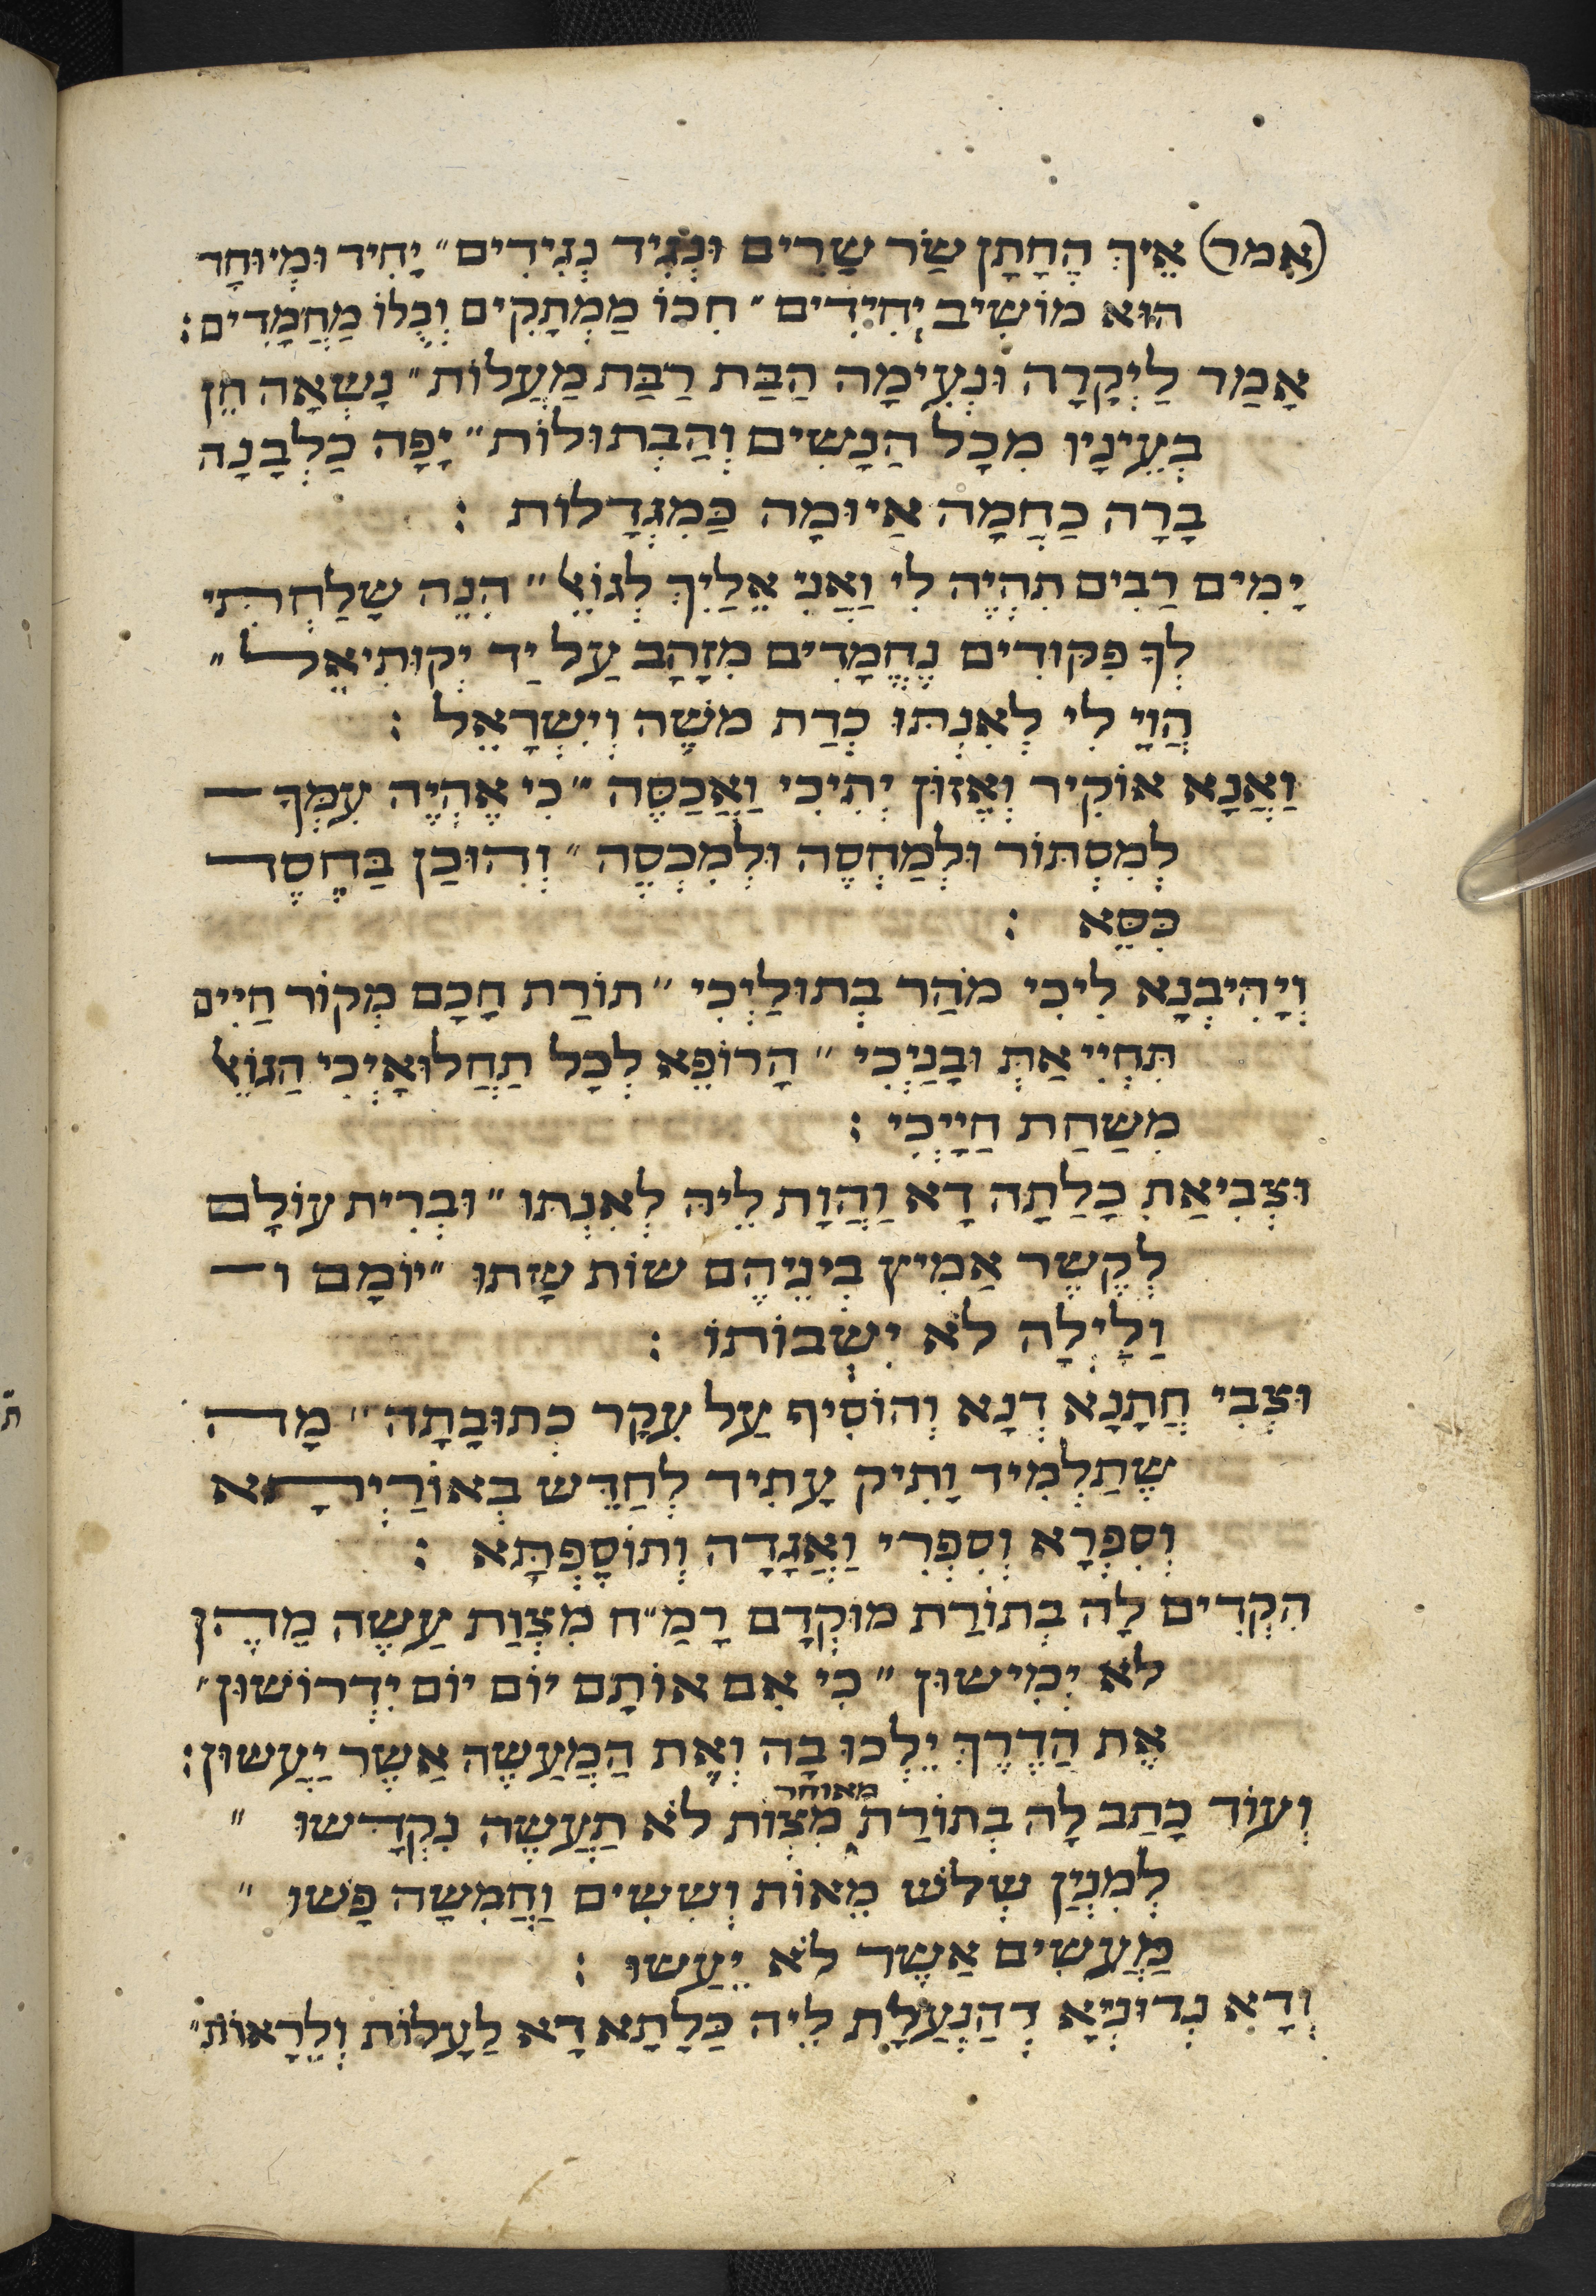 (אמר) אֵיךְ הֶחָתָן שַׂר שָׂרִים וּנְגִיד נְגִידִים״ יָחִיד וּמְיוּחָד
הוּא מוֹשִׁיב יְחִידִים״ חִכּוֹ מַמְתָקִים וְכֻלּוֹ מַחֲמָדִים:
אָמַר לַיְקָרָה וּנְעִימָה הַבַּת רַבַּת מַעֲלוֹת״ נָשְׂאָה חֵן
בְּעֵינָיו מִכָּל הַנָשִׁים וְהַבְּתוּלוֹת״ יָפָה כַלְבָנָה
בָּרָה כַּחַמָה אַיוּמָה כַּמִגְדָלוֹת :
יָמִים רַבִּים תִהְיֶה לִי וַאֲנִי אֵלַיִךְ לְגוֹאֵל״ הִנֵה שָׁלַחְתִּי
לְךָ פִקוּדִים נֶחֱמָדִים מִזָהָב עַל יַד יְקוּתִיאֵל״
הֲוָי לִי לְאִנְתּוּ כְּדַת משֶׁה וְיִשְׂרָאֵל :
וַאֲנָא אוֹקִיר וְאֵזוֹן יְתִיכִי וַאֲכַסֶּה״ כִּי אֶהְיֶה עִמְּךָ
לְמִסְתּוֹר וּלְמַחְסֶה וּלְמִכְסֶה״ וְהוּכַן בַּחֶסֶד
כִּסֵּא :
וְיָהִיבְנָא לִיכִי מֹהַר בְּתוּלַיְכִי״ תוֹרַת חָכָם מְקוֹר חַיִים
תִּחְיִי אַתְּ וּבָנַיְכִי״ הָרוֹפֵא לְכָל תַּחֲלוּאָיְכִי הַגוֹאֵל
מִשַׁחַת חַיָיְכִי :
וּצְבִיאַת כָּלַתָה דָא וַהֲוָת לֵיהּ לְאִנְתּוּ״ וּבְרִית עוֹלָם
לְקֶשֶׁר אַמִיץ בֵּינֵיהֶם שׁוֹת שָׁתוּ״ יוֹמָם ו
וָלַיְלָה לֹא יִשְׁבּוֹתוּ :
וּצְבִי חֲתָנָא דְנָא וְהוֹסִיף עַל עִקָר כְּתוּבָתָה״ מָה
שֶׁתַלְמִיד וָתִיק עָתִיד לְחַדֵּשׁ בְּאוֹרַיְיתָא
וְסִפְרָא וְסִפְרִי וַאֲגָדָה וְתוֹסֶפְתָּא :
הִקְדִים לָהּ בְּתוֹרַת מוּקְדָם רָמַ״ח מִצְוַת עֲשֵׂה מֵהֶן
לֹא יְמִישׁוּן״ כִּי אִם אוֹתָם יוֹם יוֹם יִדְרוֹשׁוּן״
אֶת הַדֶרֶךְ יֵלְכוּ בָהּ וְאֶת הַמַעֲשֶׂה אֲשֶׁר יַעֲשׂוּן:
מאוחר
וְעוֹד כָּתַב לָהּ בְּתוֹרַת מִצְוֹת לֹא תַעֲשֶׂה נִקְדָּשׁוּ״
לְמִנְיַן שְׁלֹשׁ מֵאוֹת וְשִׁשִׁים וַחֲמִשָׁה פָּשׁוּ״
מַעֲשִׂים אֲשֶׁר לֹא יֵעָשׂוּ :
וְדָא נְדוּנְיָא דְהַנְעֲלַת לֵיהּ כַּלָּתָא דָא לַעֲלוֹת וְלֵרָאוֹת״